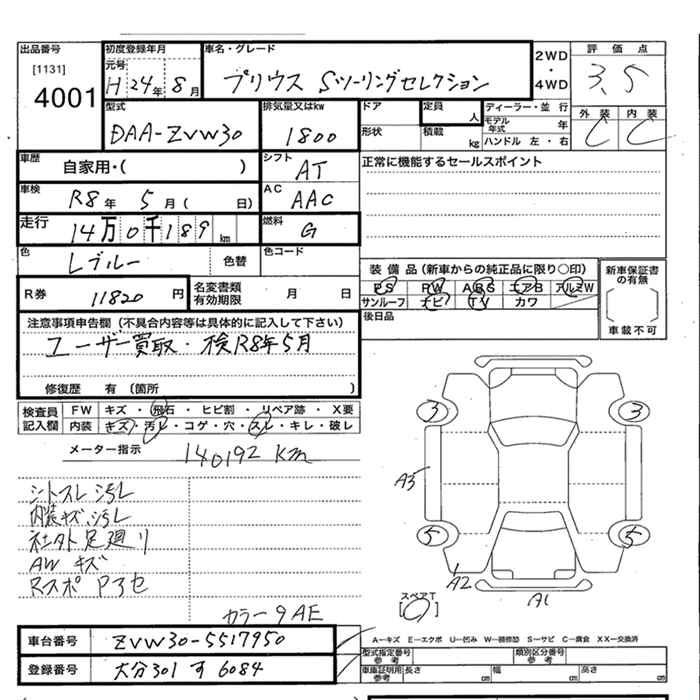 出品番号
[1131]
4001
初度登録年月
元号
H 24年 8月
車名・グレード
プリウス Sツーリングセレクション
2WD
・
4WD
評価点
3.5
型式
DAA-ZVW30
排気量又はkw
1800
ドア
形状
定員
人
積載
kg
ディーラー・並行
モデル年式 年
ハンドル 左・右
外装 内装
C C
車歴
自家用・( )
シフト
AT
正常に機能するセールスポイント
車検
R8年 5月( 日)
AC
AAC
走行
14万0千189 km
燃料
G
色
Lブルー
色替
色コード
R券 11820 円
名変書類
有効期限 月 日
装備品(新車からの純正品に限り○印)
PS PW ABS エアB アルミW
サンルーフ ナビ TV カワ
新車保証書
の有無
車載不可
後日品
注意事項申告欄(不具合内容等は具体的に記入して下さい)
ユーザー買取・検R8年5月
修復歴 有(箇所 )
検査員
記入欄
FW キズ・飛石・ヒビ割・リペア跡・X要
内装 キズ・汚レ・コゲ・穴・スレ・キレ・破レ
メーター指示 140192 Km
シートスレ汚レ
内装キズ、汚レ
社外足廻り
AW キズ
Rスポ P3セ
カラー9AE
3 3
A3
5 5
A2 A1
スペアT
[ ]
車台番号 ZVW30-5517950
登録番号 大分301 す 6084
A—キズ E—エクボ U—凹み W—補修跡 S—サビ C—腐食 XX—交換済
型式指定番号
参考
類別区分番号
参考
車庫証明用
参考
長さ cm 幅 cm 高さ cm